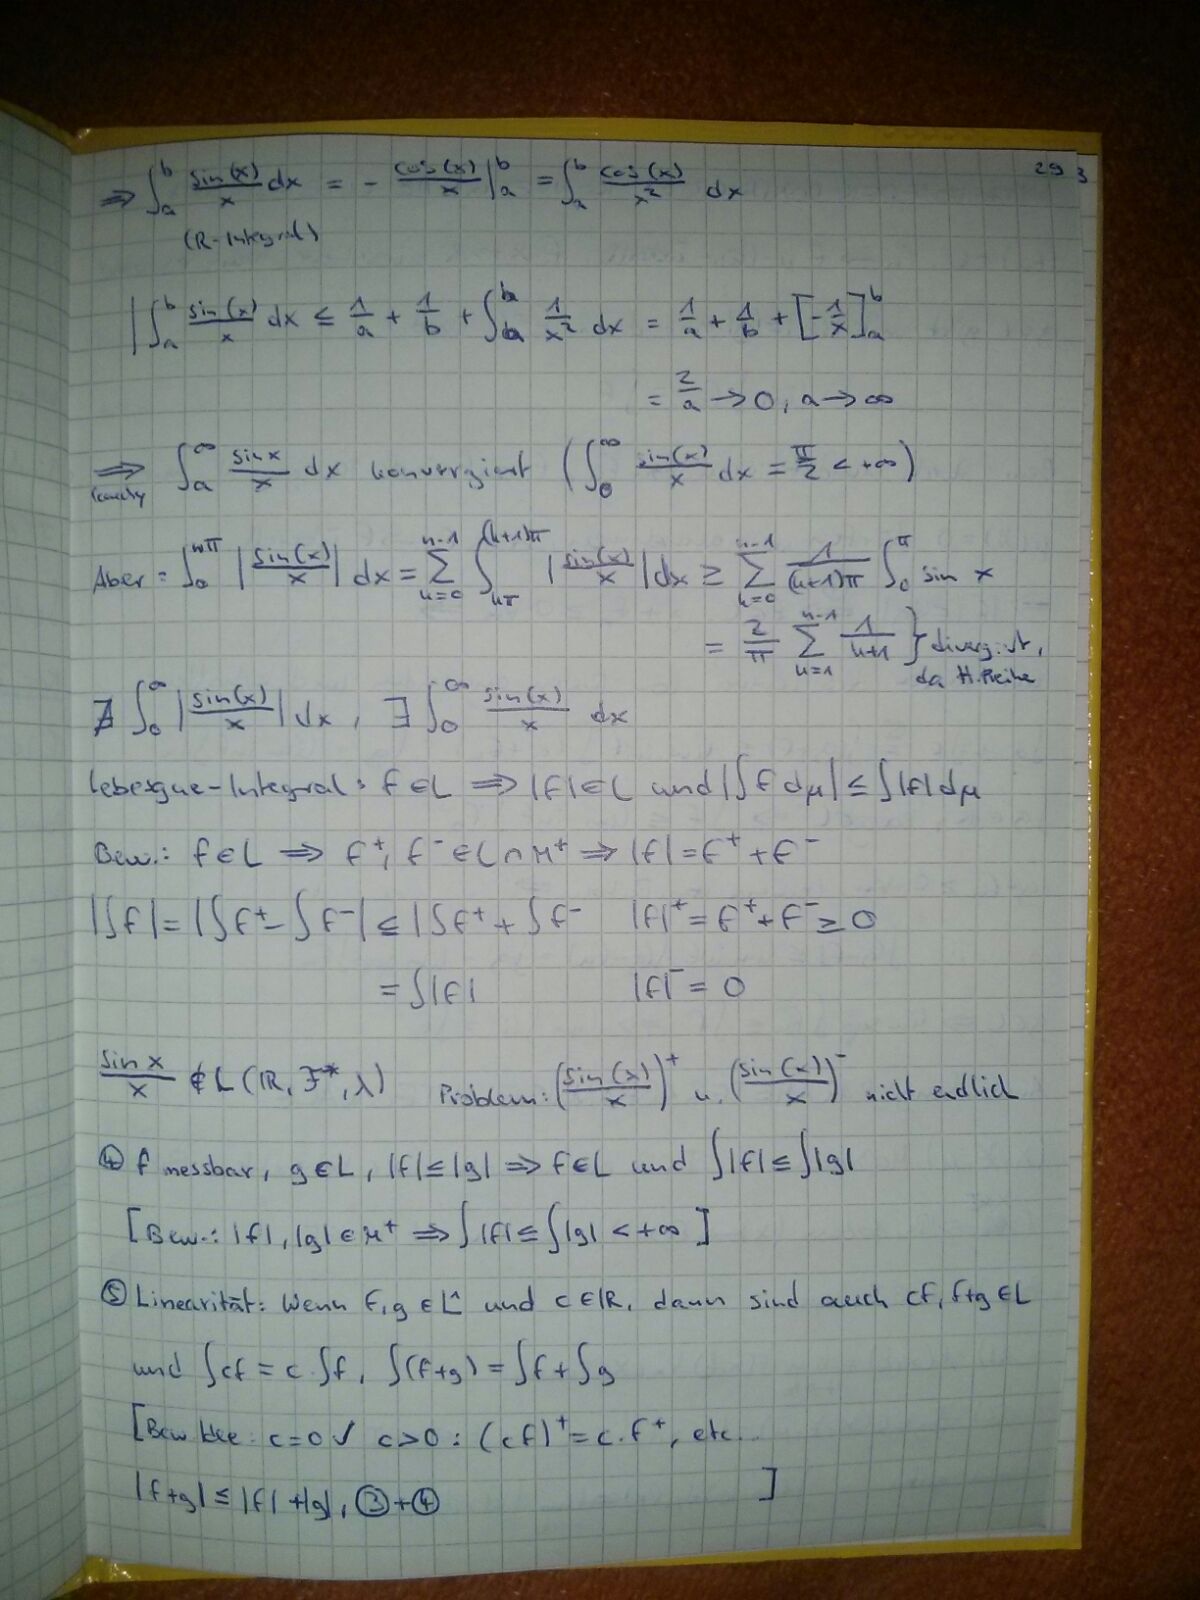 29 3
⇒ ∫_a^b sin(x)/x dx = - cos(x)/x |_a^b = ∫_a^b cos(x)/x² dx
(R-Integral)
| ∫_a^b sin(x)/x dx ≤ 1/a + 1/b + ∫_a^b 1/x² dx = 1/a + 1/b + [-1/x]_a^b
= 2/a → 0, a → ∞
⇒ ∫_a^∞ sin x/x dx konvergiert (∫_0^∞ sin(x)/x dx = π/2 < +∞)
Cauchy
Aber: ∫_0^{nπ} |sin(x)/x| dx = Σ_{k=0}^{n-1} ∫_{kπ}^{(k+1)π} |sin(x)/x| dx ≥ Σ_{k=0}^{n-1} 1/((k+1)π) ∫_0^π sin x
= 2/π Σ_{k=1}^{n-1} 1/(k+1) } divergiert,
da H. Reihe
∄ ∫_0^∞ |sin(x)/x| dx, ∃ ∫_0^∞ sin(x)/x dx
Lebesgue-Integral: f∈L ⇒ |f|∈L und |∫f dμ| ≤ ∫|f| dμ
Bew.: f∈L ⇒ f⁺, f⁻ ∈ L∩M⁺ ⇒ |f| = f⁺ + f⁻
|∫f| = |∫f⁺ - ∫f⁻| ≤ |∫f⁺ + ∫f⁻ |f|⁺ = f⁺ + f⁻ ≥ 0
= ∫|f| |f|⁻ = 0
sin x/x ∉ L(ℝ, F*, λ) Problem: (sin(x)/x)⁺ u. (sin(x)/x)⁻ nicht endlich
④ f messbar, g∈L, |f| ≤ |g| ⇒ f∈L und ∫|f| ≤ ∫|g|
[Bew.: |f|, |g| ∈ M⁺ ⇒ ∫|f| ≤ ∫|g| < +∞ ]
⑤ Linearität: Wenn f, g ∈ L und c∈ℝ, dann sind auch cf, f+g ∈ L
und ∫cf = c·∫f, ∫(f+g) = ∫f + ∫g
[Bew Idee: c=0 ✓ c>0: (cf)⁺ = c·f⁺, etc...
|f+g| ≤ |f| + |g|, ③+④ ]